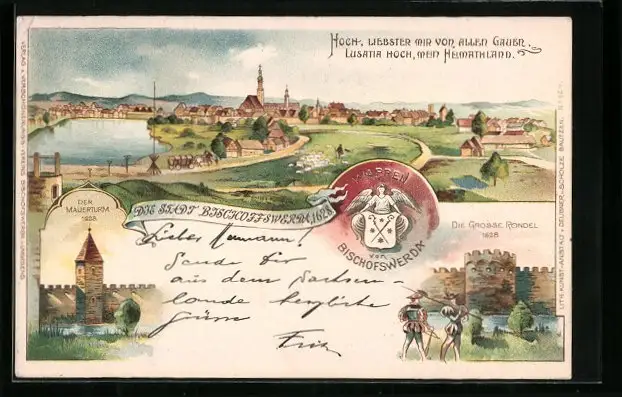 HOCH-, LIEBSTER MIR VON ALLEN GAUEN.
LUSATIA HOCH, MEIN HEIMATHLAND.
DER
MAUERTURM
1628
DIE STADT BISCHOFFSWERDA 1628
WAPPEN
VON
BISCHOFSWERDA
DIE GROSSE RONDEL
1628
Lieber Hermann!
Sende Dir
aus dem Sachsen-
lande herzliche
Grüsse
Fritz
LITH. KUNST-ANSTALT v. DEUSNER-SCHOLZE BAUTZEN.